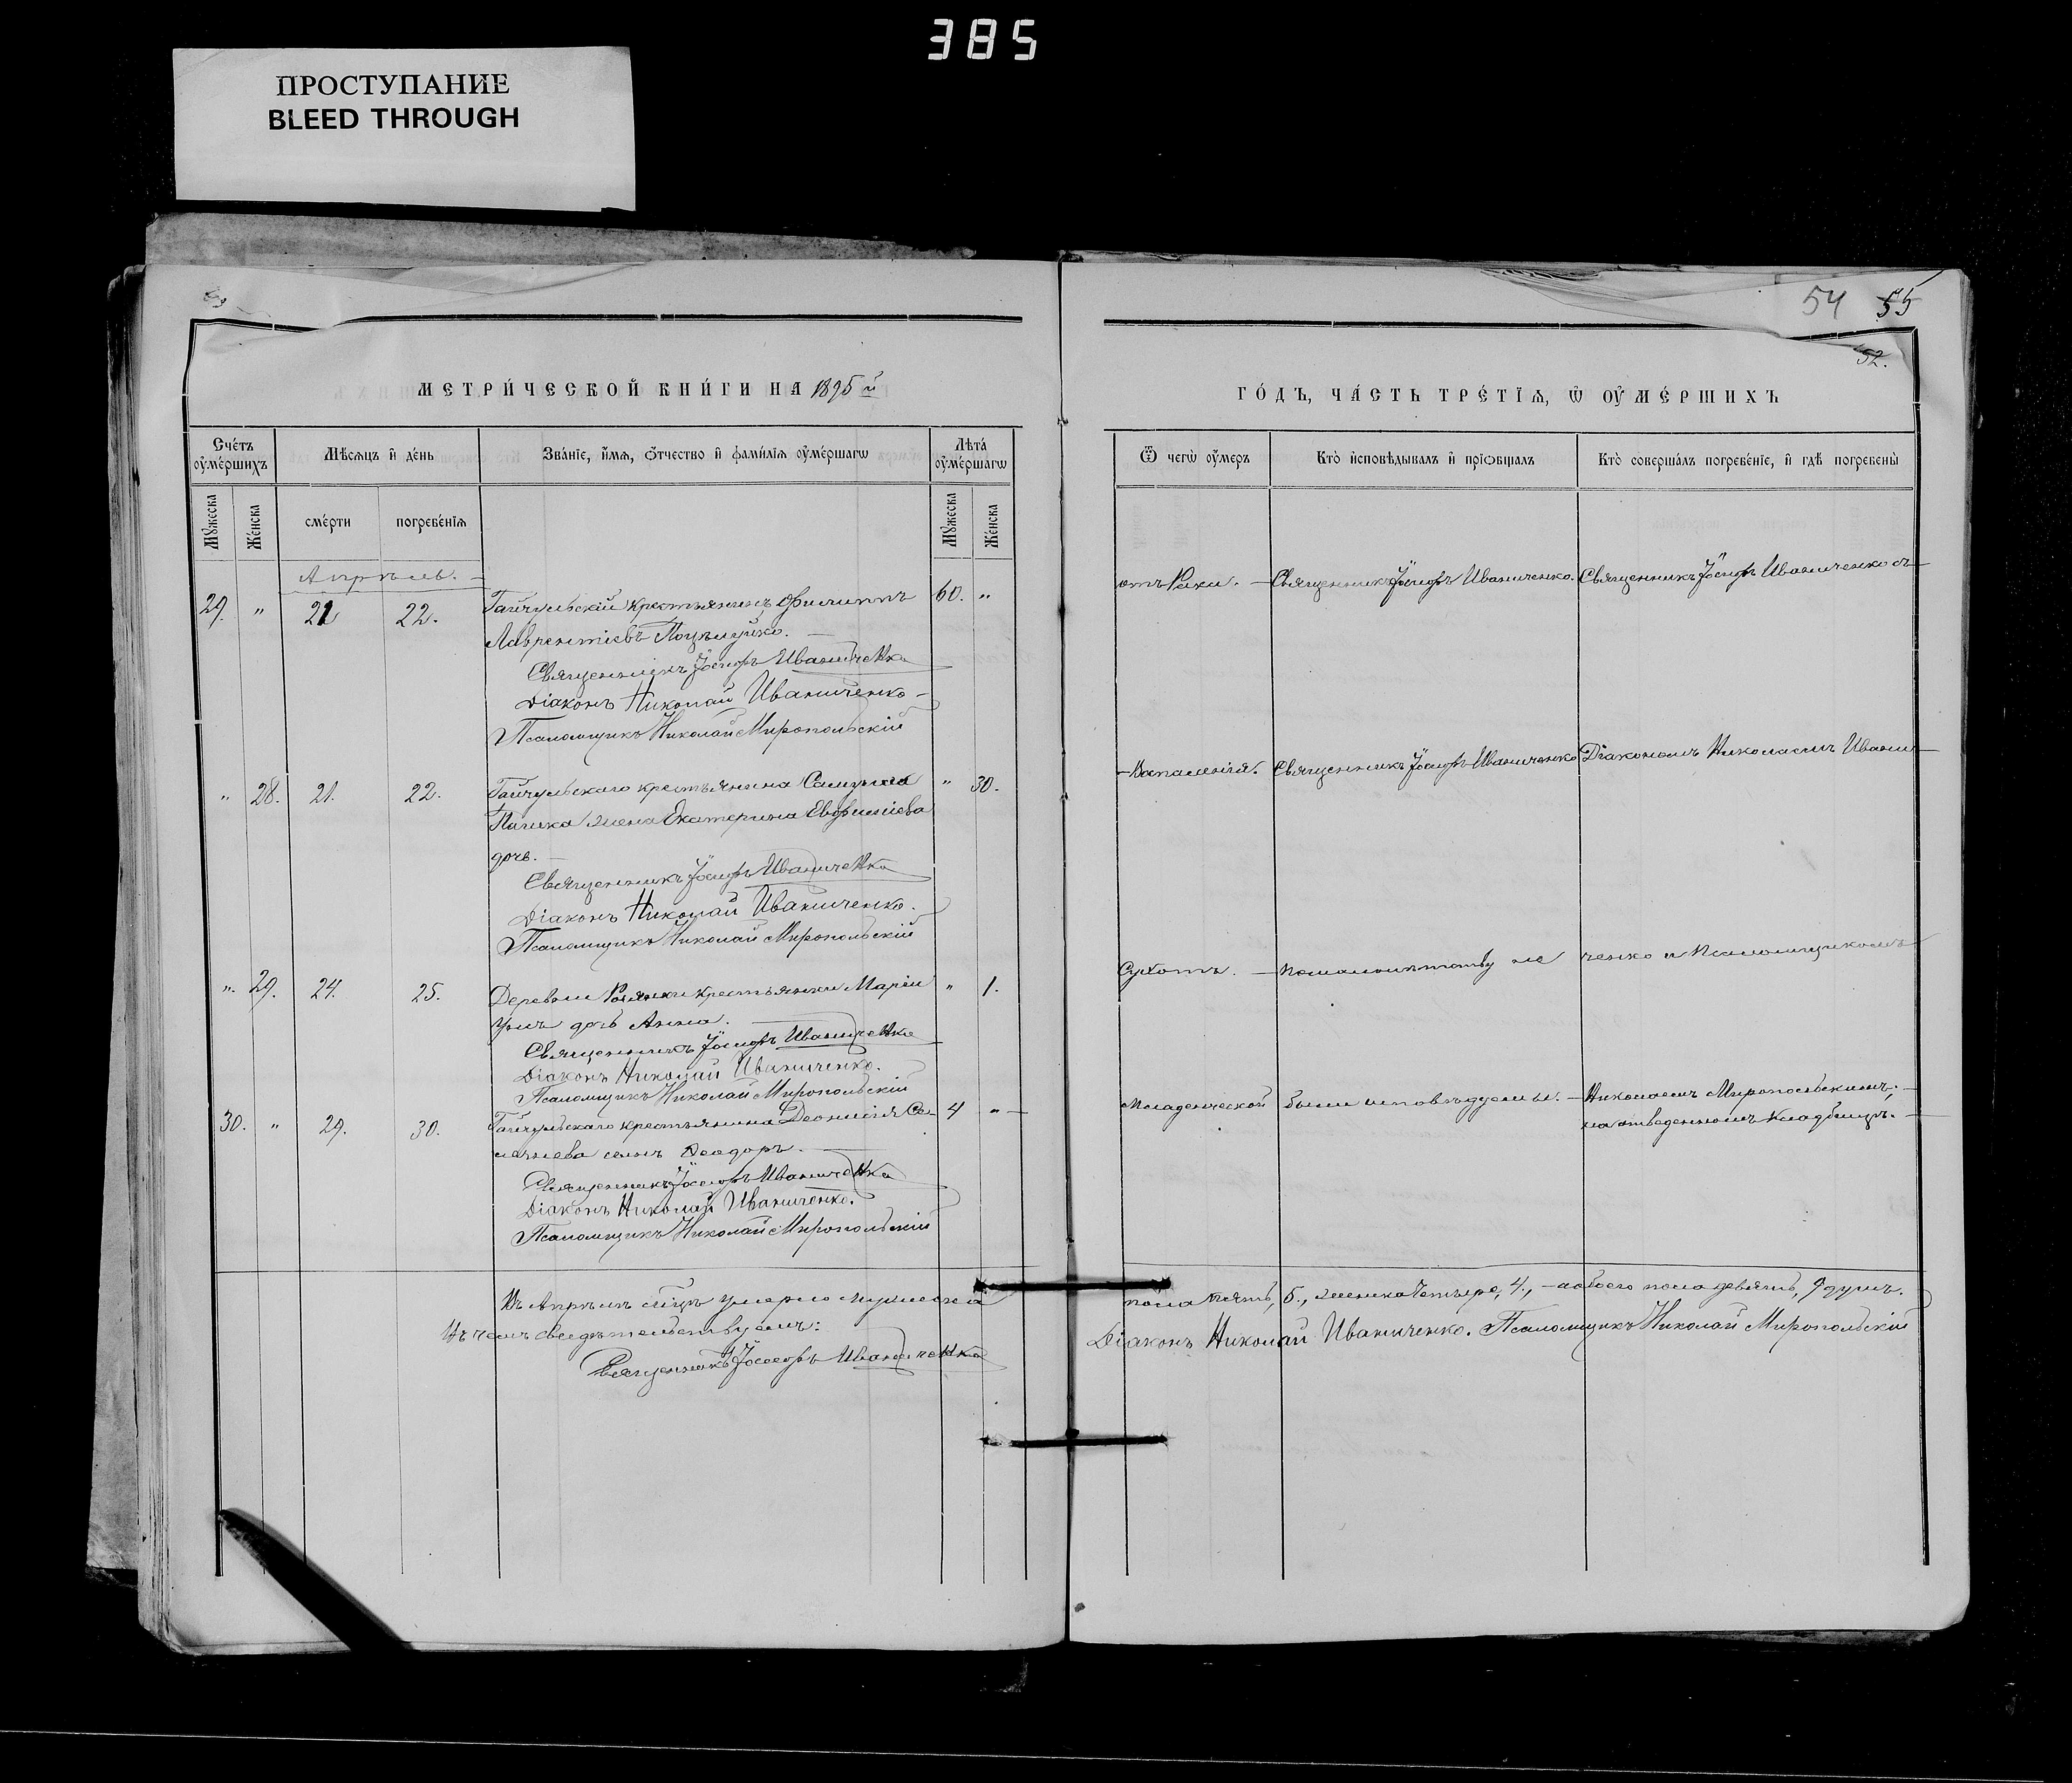 385
ПРОСТУПАНИЕ
BLEED THROUGH
54 55
52.
МЕТРИ́ЧЕСКОЙ КНИ́ГИ НА 1895й
ГО́ДЪ, ЧА́СТЬ ТРЕ́ТЇѦ, Ѡ҆ ОУ҆МЕ́РШИХЪ
Сче́тъ оу҆ме́ршихъ
Мѣ́сѧцъ и҆ де́нь
Зва́нїе, и҆́мѧ, ѻ҆́тчество и҆ фамѝлїѧ оу҆ме́ршагѡ
Лѣта̀ оу҆ме́ршагѡ
Ѿ чегѡ̀ оу҆́меръ
Кто̀ и҆сповѣ́дывалъ и҆ прїѡбща́лъ
Кто̀ соверша́лъ погребе́нїе, и҆ гдѣ̀ погребены̀
Мꙋ́жеска
Же́нска
сме́рти
погребе́нїѧ
Мꙋ́жеска
Же́нска
Апрѣль.
29. " 21 22. Гайчульскій крестьянинъ Филиппъ 60. "
Лаврентіевъ Поцѣлуйко.
Священникъ Іосифъ Иваниченко
Діаконъ Николай Иваниченко
Псаломщикъ Николай Миропольскій
отъ Рака. Священникъ Іосифъ Иваниченко. Священникъ Іосифъ Иваниченко съ
" 28. 21. 22. Гайчульскаго крестьянина " 30.
жена Екатерина Евфиміева
дочь.
Священникъ Іосифъ Иваниченко
Діаконъ Николай Иваниченко.
Псаломщикъ Николай Миропольскій
Воспаленія. Священникъ Іосифъ Иваниченко Діакономъ Николаемъ Ивани
" 29. 24. 25. Деревни крестьянки Маріи " 1.
дочь Анна.
Священникъ Іосифъ Иваниченко
Діаконъ Николай Иваниченко.
Псаломщикъ Николай Миропольскій
Сухотъ. По малолѣтству не ченко и Псаломщикомъ
30. " 29. 30. Гайчульскаго крестьянина Леонтія Се- 4 "
сынъ Ѳеодоръ.
Священникъ Іосифъ Иваниченко
Діаконъ Николай Иваниченко.
Псаломщикъ Николай Миропольскій
Младенческой были исповѣдуемы. Николаемъ Миропольскимъ;
на отведенномъ кладбищѣ.
Въ Апрѣлѣ м-цѣ умерло мужеска пола пять, 5., женска четыре, 4., а обоего пола девять, 9 душъ.
Въ чемъ свидѣтельствуемъ:
Священникъ Іосифъ Иваниченко Діаконъ Николай Иваниченко. Псаломщикъ Николай Миропольскій